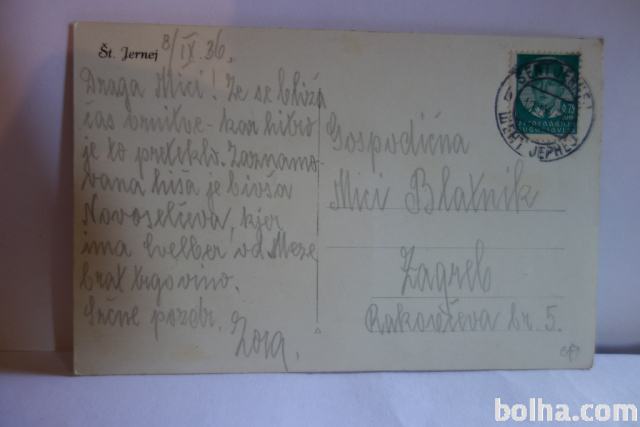 Št. Jernej
8/IX. 36.
Draga Mici! Že se bliža
čas vrnitve - kar hitro
je to preteklo. Zaznamo-
vana hiša je bivša
Novoselčeva, kjer
ima Velber od Meze
brat trgovino.
Srčne pozdr. Zora.
Gospodična
Mici Blatnik
Zagreb
Rakovčeva br. 5.
ШЕНТ ЈЕРНЕЈ
bolha.com